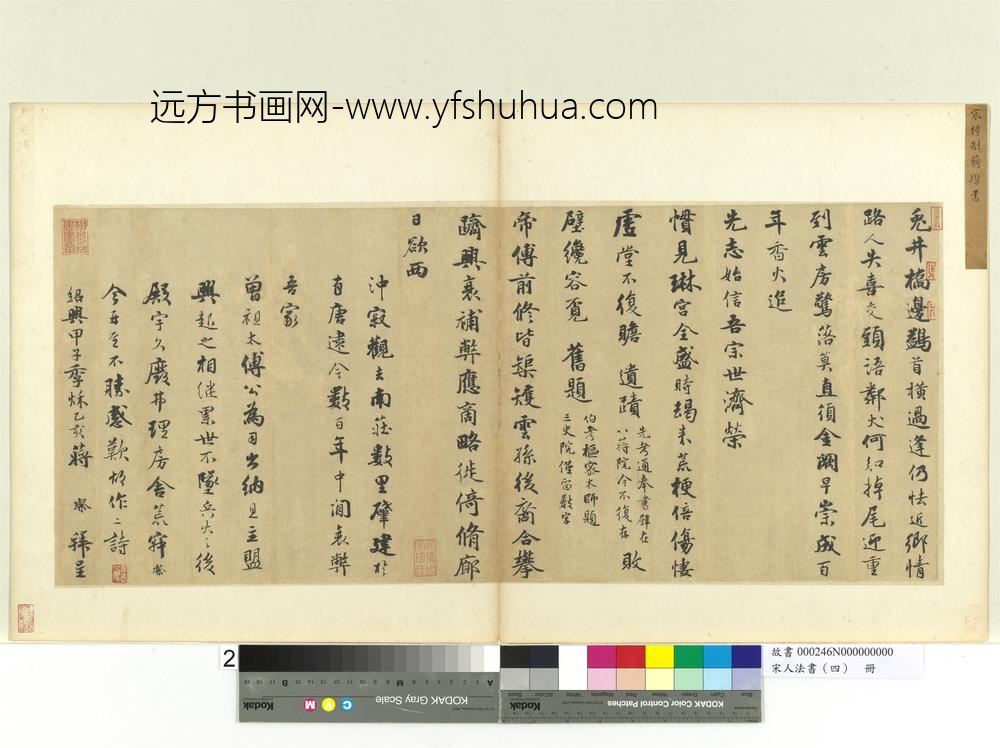 远方书画网-www.yfshuhua.com
宋待制蔣璨書
兎井橋邊鷁首橫過逢仍怯近鄉情
路人失喜交頭語鄰犬何知掉尾迎重
到雲房驚落莫直須金闕早崇成百
年香火追
先志始信吾宗世濟榮
慣見琳宮全盛時朅來荒梗倍傷悽
虛堂不復瞻遺蹟先考通奉書碑在八蔣院今不復存敗
壁纔容覓舊題伯考樞密太師題三史院僅留數字
帝傅前修皆榘矱雲孫後裔合攀
躋興衰補弊應商略徙倚脩廊
日欲西
沖寂觀去南莊數里肇建於
有唐遠今數百年中間衰弊
吾家
曾祖太傅公為司出納且主盟
興起之相繼累世不墜兵火之後
殿宇久廢弗理房舍荒穽璨
今再至不勝感歎故作二詩
紹興甲子季秋乙亥蔣璨拜呈
2
故書 000246N000000000
宋人法書（四） 冊
KODAK Gray Scale
Kodak
C
Y
M
A
B
KODAK Color Control Patches
Blue
Cyan
Green
Yellow
Red
Magenta
White
3/Color
Black